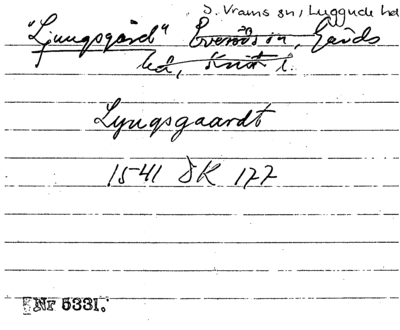 S. Vrams sn, Luggude hd
"Ljungsgård" Everöds sn, Gärds
hd, Krist l.
Lyngsgaardt
1541 DK 177
Nr 5331.